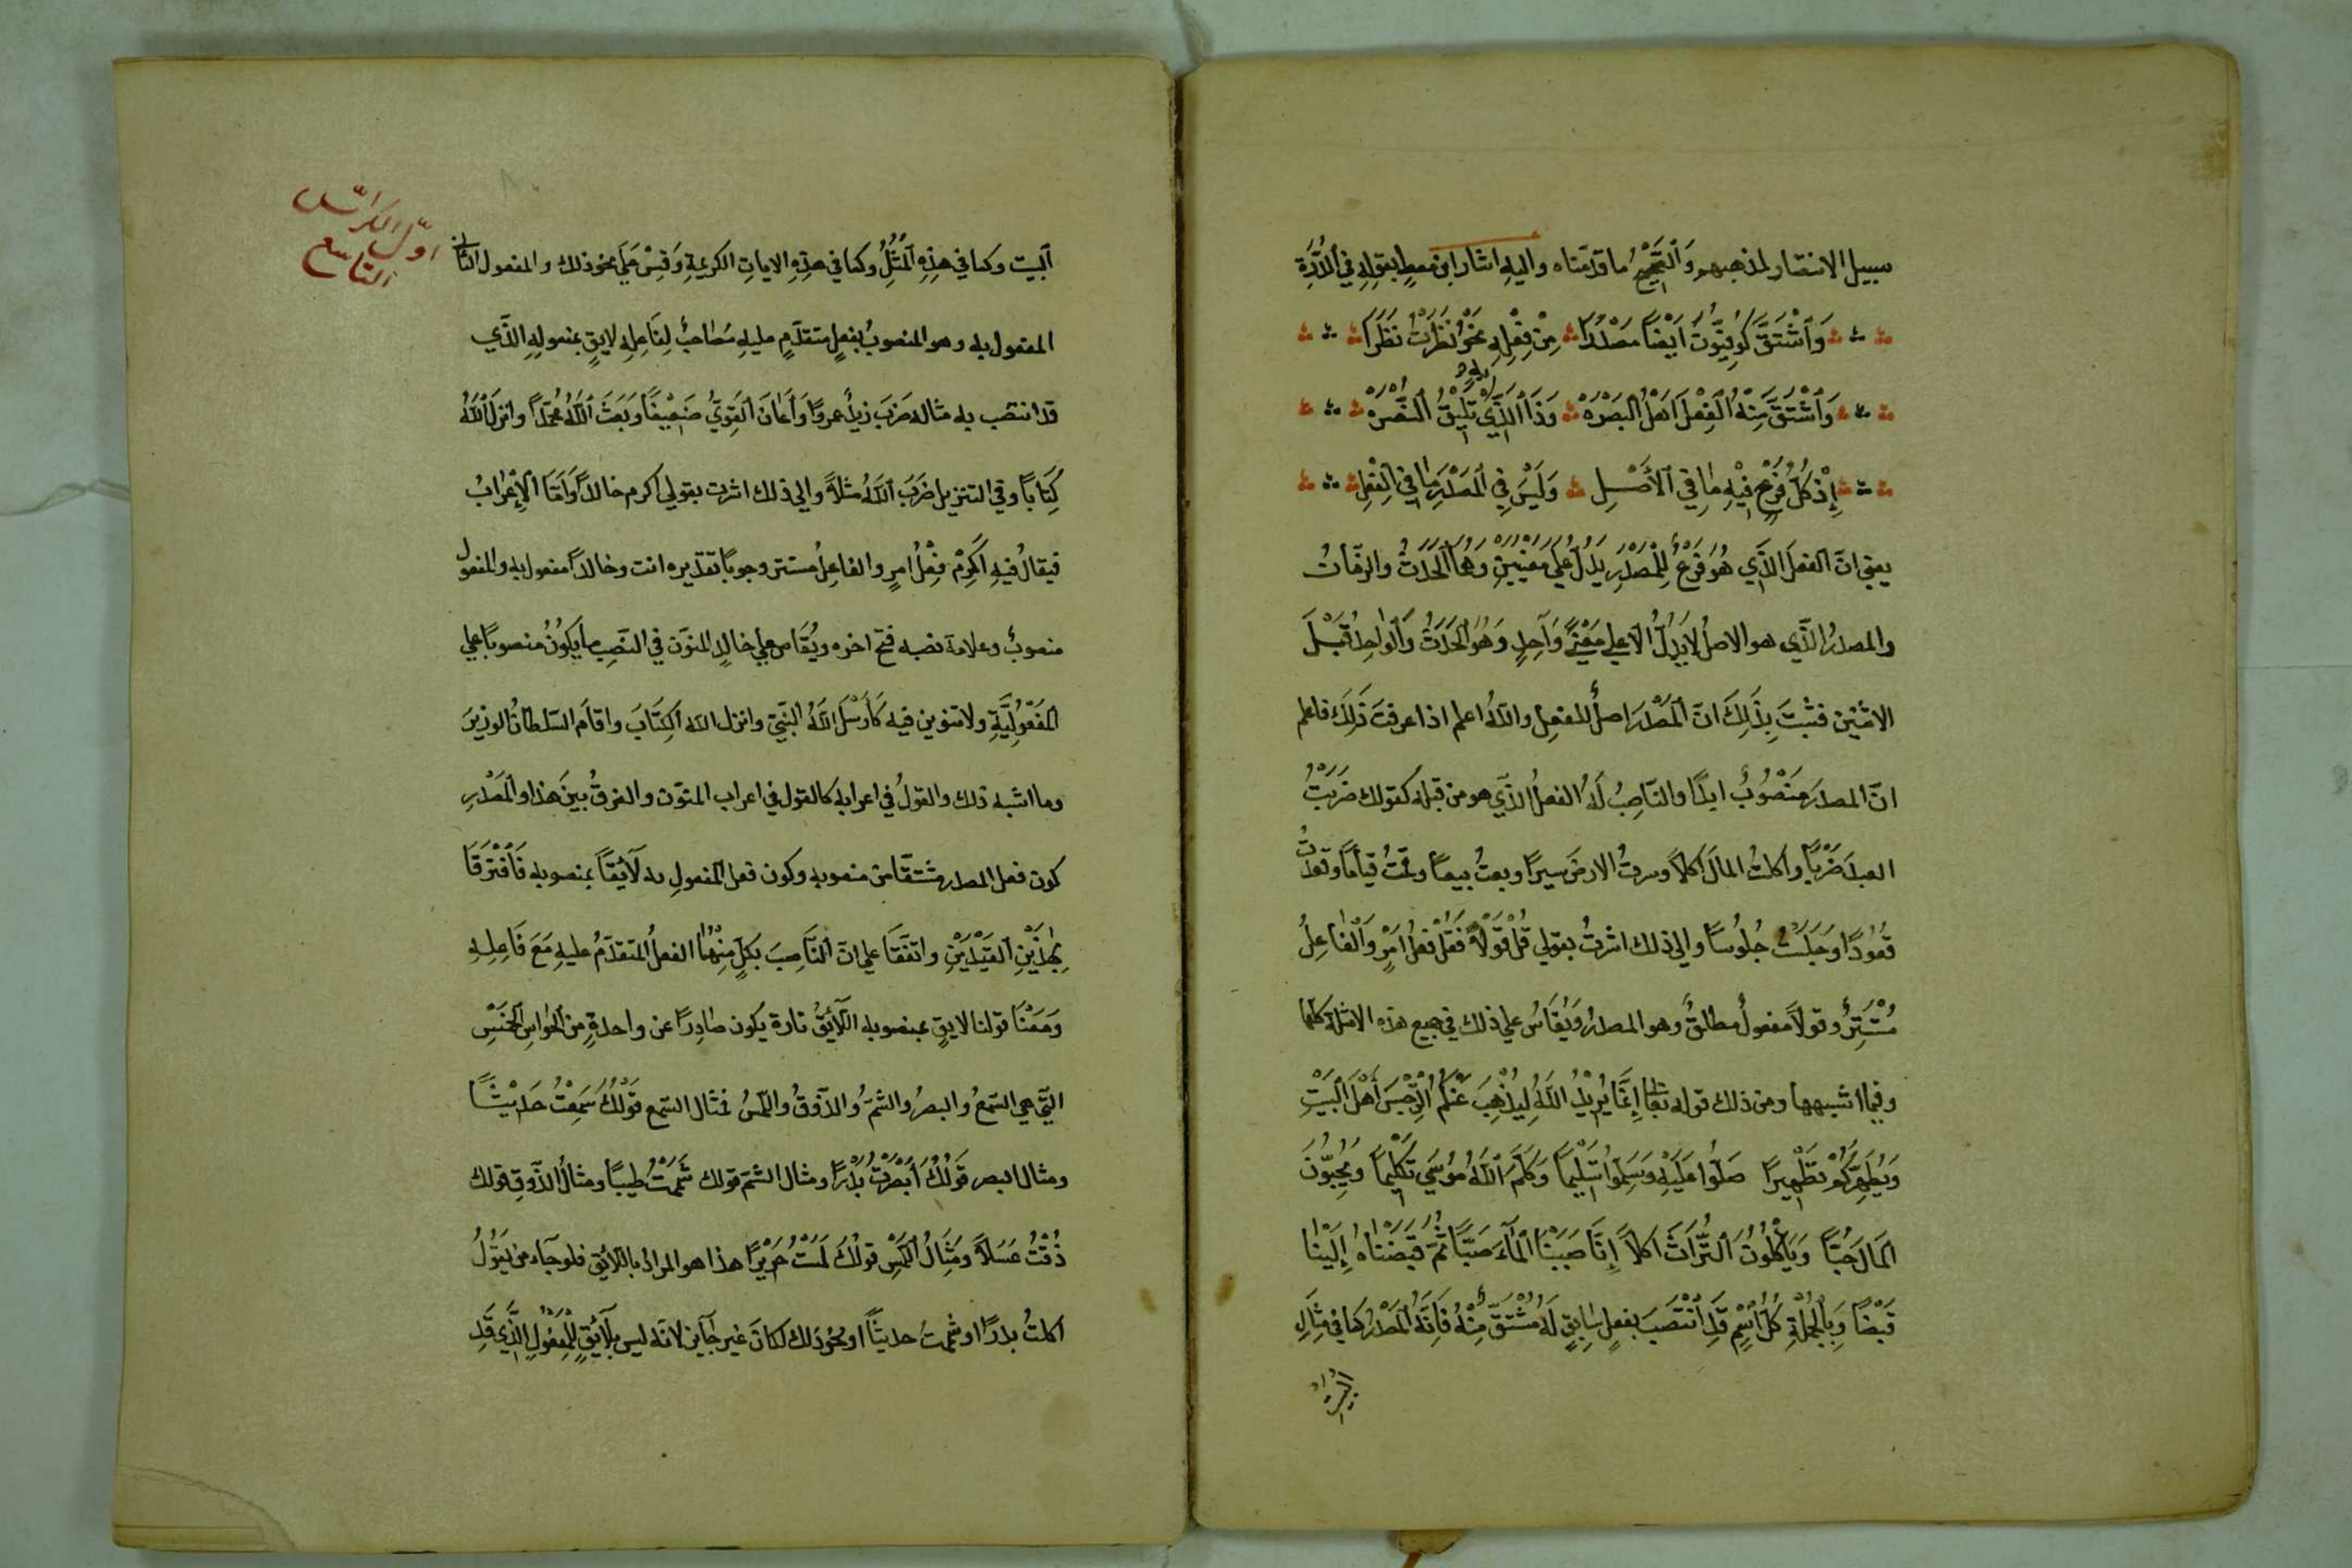 سبيل الانتصار لمذهبهم وَالصَّحِيْحُ ما قدمناه واليهِ اشار ابن معطٍ بقولِهِ في الدُّرَّةِ
وَاشْتَقَّ كُوفِيُّونَ اَيْضًا مَصْدَرًا مِنْ فِعْلِهِ نَحْوُ نَظَرْتُ نَظَرًا
وَاشْتَقَّ مِنْهُ الْفِعْلَ اَهْلُ البَصْرَهْ وَذَا الَّذِي بِهِ تَلِيْقُ النُّصْرَهْ
إِذْ كُلُّ فَرْعٍ فِيْهِ مَا فِي الْأَصْلِ وَلَيْسَ فِي الْمَصْدَرِ مَا فِي الْفِعْلِ
يعني انّ الفعلَ الَّذِي هُوَ فَرْعٌ لِلْمَصْدَرِ يَدُلُّ عَلَى مَعْنَيَيْنِ وَهُمَا الْحَدَثُ والزّمَانُ
والمصدرُ الَّذِي هو الاصلُ لَا يَدُلُّ الا علي مَعْنًي وَاحِدٍ وَهُوَ الْحَدَثُ وَالْوَاحِدُ قَبْلَ
الاثنَيْنِ فثبتَ بِذَلِكَ انّ الْمَصْدَرَ اصلٌ للفعلِ واللهُ اعلم اذا عرفتَ ذَلِكَ فاعلم
انّ المصدرَ مَنْصُوْبٌ ابدًا والنّاصِبُ لَهُ الفعلُ الذّي هو من قبله كقولك ضَرَبْتُ
العبدَ ضَرْبًا واكلتُ المالَ اكلاً وسرتُ الارضَ سيرًا وبعتُ بيعًا وقمتُ قيامًا وقعدتُ
قُعُوْدًا وَجَلَسْتُ جُلُوسًا والى ذلك اشرتُ بقولي قُلْ قَوْلًا فَقُلْ فعلُ امرٍ وَالْفَاعِلُ
مُسْتَتِرٌ وقولاً مفعولٌ مطلقٌ وهو المصدرُ وَيُقَاسُ علي ذلك في جميع هذه الامثلة كلها
وفيما اشبهها ومن ذلك قوله تعالى إِنَّمَا يُرِيْدُ اللَّهُ لِيُذْهِبَ عَنْكُمُ الرِّجْسَ أَهْلَ الْبَيْتِ
وَيُطَهِّرَكُمْ تَطْهِيرًا صَلُّوا عَلَيْهِ وَسَلِّمُوا تَسْلِيْمًا وَكَلَّمَ اللهُ مُوْسَي تَكْلِيْمًا وَيُحِبُّوْنَ
الْمَالَ حُبًّا وَيَأْكُلُوْنَ التُّرَاثَ اكلاً إِنَّا صَبَبْنَا الْمَآءَ صَبًّا ثُمَّ قَبَضْنَاهُ إِلَيْنَا
قَبْضًا وَبِالْجُمْلَةِ كُلُّ اسْمٍ قَدِ انْتَصَبَ بفعلٍ سَابِقٍ لَهُ مُشْتَقٍّ مِنْهُ فَاِنَّهُ الْمَصْدَرُ كما في مِثَالِ
البيت
اوّل الكرّاس
التاسع
البيت وكما في هذِهِ الْمُثُلِ وكما في هذِهِ الاياتِ الكريمةِ وَقِسْ عَلَى نحو ذلك والمفعول الثاني
المفعول به وهو المنصوبُ بفعلٍ متقدّمٍ عليهِ مُصَاحبٌ لِفَاعِلِهِ لايقٍ بمفعولِهِ الذَّي
قد انتصَب به مثاله ضَرَبَ زيدٌ عمروًا وَأَعَانَ الْقَوِيُّ ضَعِيْفًا وَبَعَثَ اللهُ مُحَمَّدًا وانزلَ اللهُ
كِتَابًا وفي التنزيل ضَرَبَ اللَّهُ مثلاً والى ذلك اشرت بقولي اكرم خالدًا وَأَمَّا الْإِعْرَابُ
فيقالُ فيهِ اَكْرِمْ فِعْلُ امرٍ والفاعلُ مستتر وجوبًا تقديره انت وخالدًا مفعول به والمفعول
منصوبٌ وعلامة نصبه فتح اخره ويُقَاس علي خالدٍ المنوّن في النَّصبِ ما يكونُ منصوبًا علي
المَفْعُولِيَّةِ ولا تنوين فيه كَأَرْسَلَ اللَّهُ النَّبِيَّ وانزل الله الكِتَابَ واقامَ السّلطانُ الوزيرَ
وما اشبه ذلك والقولُ في اعرابه كالقول في اعراب المنوّن والفرقُ بينَ هذا والْمَصْدَرِ
كون فعل المصدر مشتقًا من منصوبه وكون فعل المفعولِ به لَائِقًا بمنصوبه فَافْتَرَقَا
بِهٰذَيْنِ الْقَيْدَيْنِ واتفَقَا علي انّ النَّاصِبَ بكلٍّ مِنْهُمَا الفعلُ المتقدّمُ عليهِ مَعَ فَاعِلِهِ
وَمَعْنَا قولنا لايقٍ بمنصوبه اللَّائِقُ تارة يكون صَادِرًا عن واحدةٍ من الحواسِ الْخَمْسِ
التَّي هي السّمعُ والبصرُ والشّمُّ والذّوقُ واللّمسُ فمثال السّمع قَوْلُكَ سَمِعْتُ حَدِيْثًا
ومثال البصر قَوْلُكَ اَبْصَرْتُ بَدْرًا ومثال الشّم قولك شَمَمْتُ طيبًا ومثالُ الذّوقِ قولك
ذُقْتُ عَسَلاً وَمِثَالُ اللَّمْسِ قولُكَ لَمَسْتُ حَرِيْرًا هذا هو المرادُ باللّائِقِ فلو جآء من يَقُوْلُ
اكلتُ بدرًا او شممتُ حديثًا او نحو ذلك لكانَ غير جَايز لانّه ليس بِلَائِقٍ لِلْمَفْعُوْلِ الَّذِي قَدِ